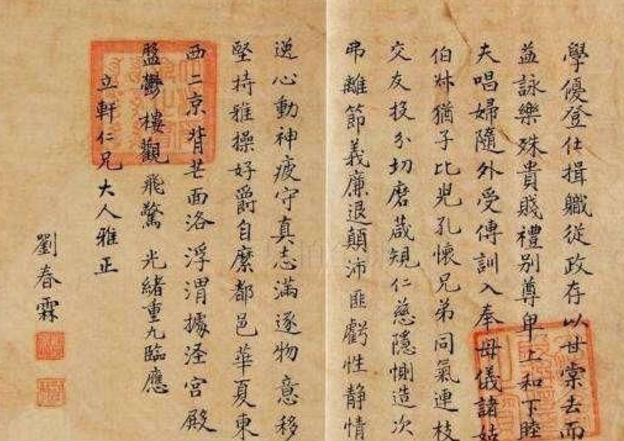 學優登仕揖職從政存以甘棠去而
益詠樂殊貴賤禮別尊卑上和下睦
夫唱婦隨外受傅訓入奉母儀諸姑
伯叔猶子比兒孔懷兄弟同氣連枝
交友投分切磨葴規仁慈隱惻造次
弗離節義廉退顛沛匪虧性靜情
逸心動神疲守真志滿逐物意移
堅持雅操好爵自縻都邑華夏東
西二京背芒面洛浮渭據涇宮殿
盤鬱樓觀飛驚 光緒重九臨應
立軒仁兄大人雅正
劉春霖